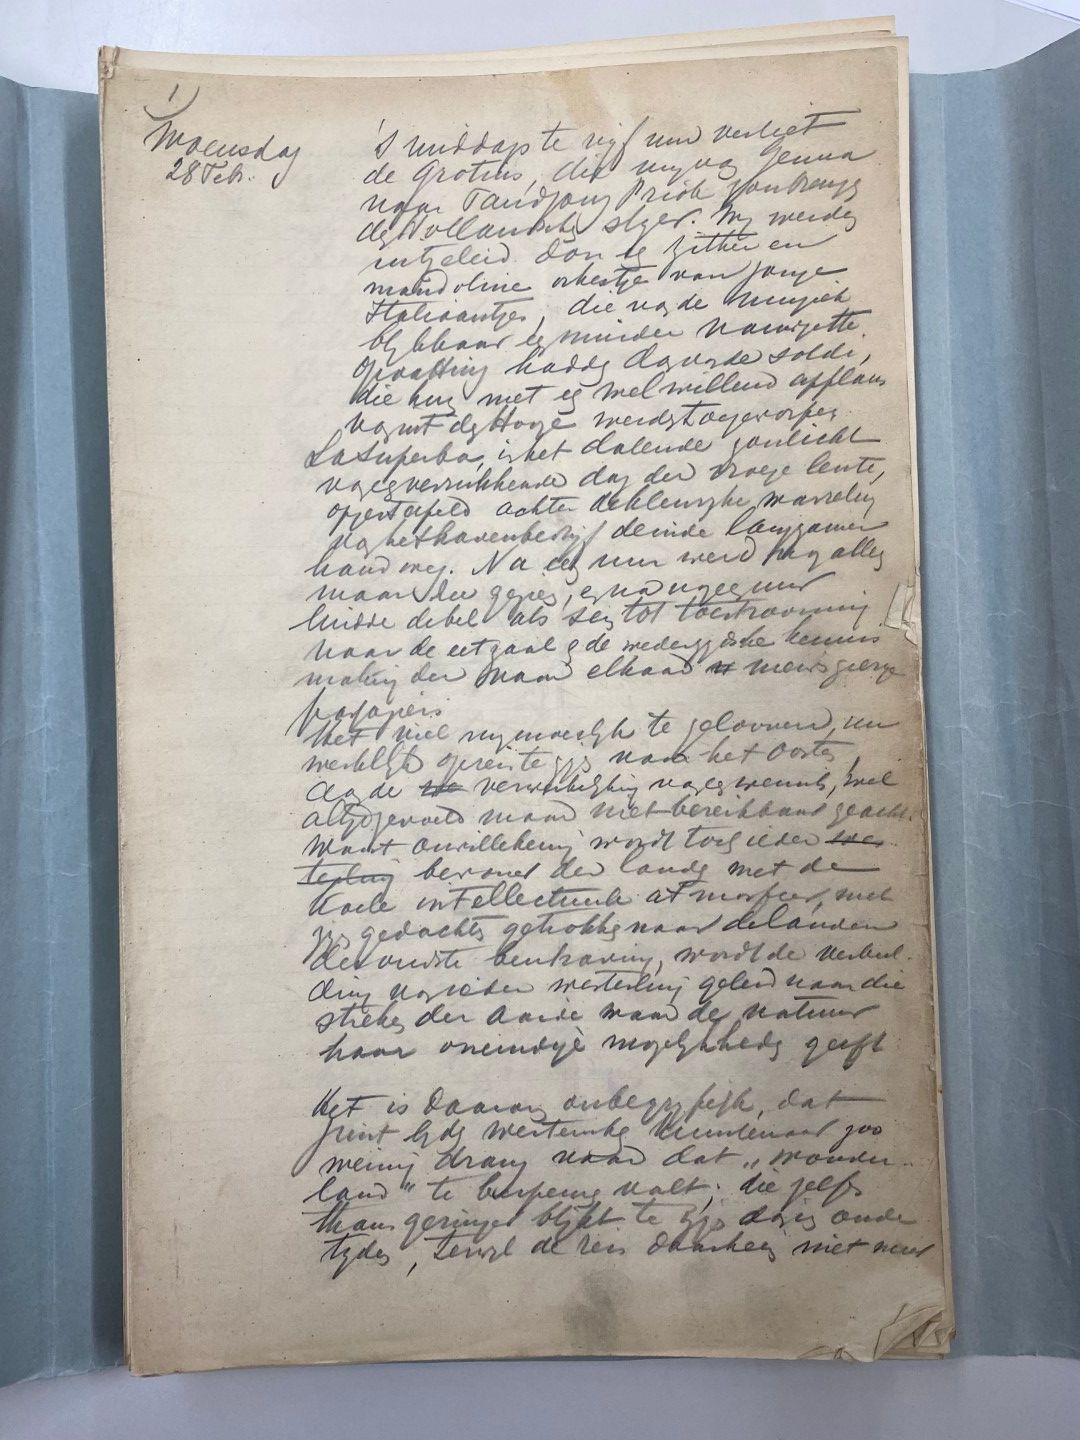 1)
Woensdag
28 Febr.
'S middags te vijf uur verliet
de Grotius, die mij van Genua
naar Tandjong Priok zou brengen
den Hollandschen steger. Wij werden
uitgeleid door een zither en
mandoline orkestje van jonge
Italiaantjes, die van de muziek
blijkbaar een minder nauwgezette
opvatting hadden dan van de soldi,
die hun met een welwillend applaus
van uit den Hooge werden toegeworpen.
La Superba, in het dalende zonlicht
van een verrukkende dag der vroege lente,
opgestapeld achter de kleurige warreling
van het havenbedrijf deinde langzamer
hand weg. Na een uur werd nog alleen
maar zee gezien, en na nog een uur
luidde de bel als sein tot toestrooming
naar de eetzaal en de wederzijdsche kennis
making der naar elkaar nieuwsgierige
passagiers
Het viel mij moeilijk te gelooven, nu
werkelijk op reis te zijn naar het Oosten,
aan de verwerkelijking van een wensch, wel
altijd gevoeld maar niet bereikbaar geacht.
Want onwillekeurig wordt toch ieder
bewoner der landen met de
koele intellectueele atmosfeer, met
zijn gedachten getrokken naar de landen
der oudste beschaving, wordt de verbeel
ding van ieder westerling geleid naar die
streken der aarde waar de natuur
haar oneindige mogelijkheden geeft
Het is daarom onbegrijpelijk, dat
juist bij den westerschen kunstenaar zoo
weinig drang naar dat „wonder-
land" te bespeuren valt; die zelfs
thans geringer blijkt te zijn dan in oude
tijden, terwijl de reis daarheen niet meer